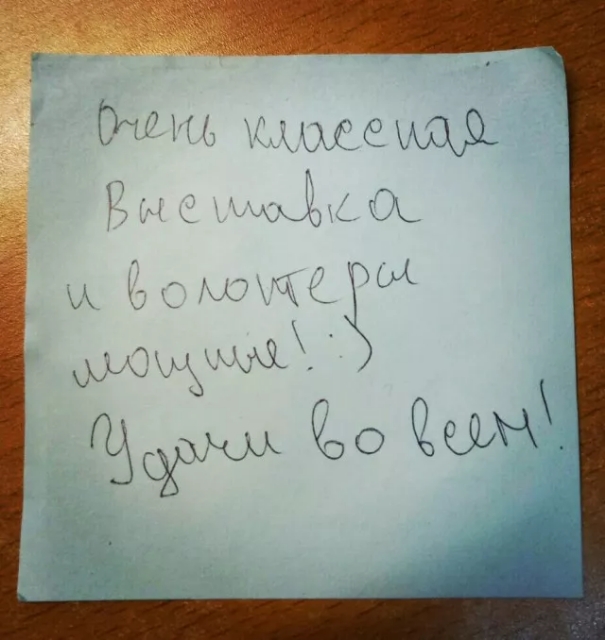 Очень классная
Выставка
и волонтеры
мощные! :)
Удачи во всем!